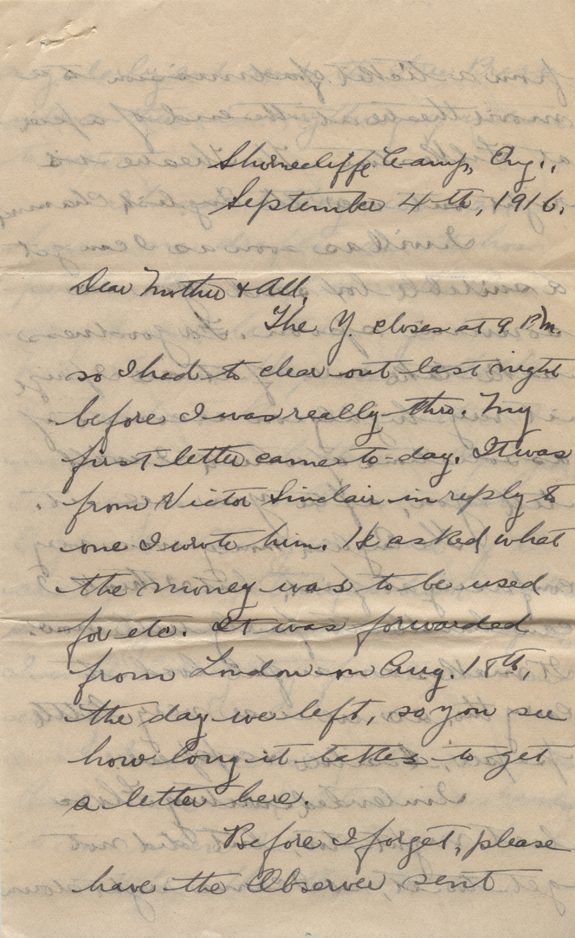 Shorncliffe Camp, Eng.,
September 4th, 1916.
Dear Mother & All,
The Y. closes at 9 P.m.
so I had to clear out last night
before I was really thro. My
first letter came to-day. It was
from Victor Sinclair in reply to
one I wrote him. He asked what
the money was to be used
for etc. It was forwarded
from London on Aug. 18th,
the day we left, so you see
how long it takes to get
a letter here.
Before I forget, please
have the Observer sent